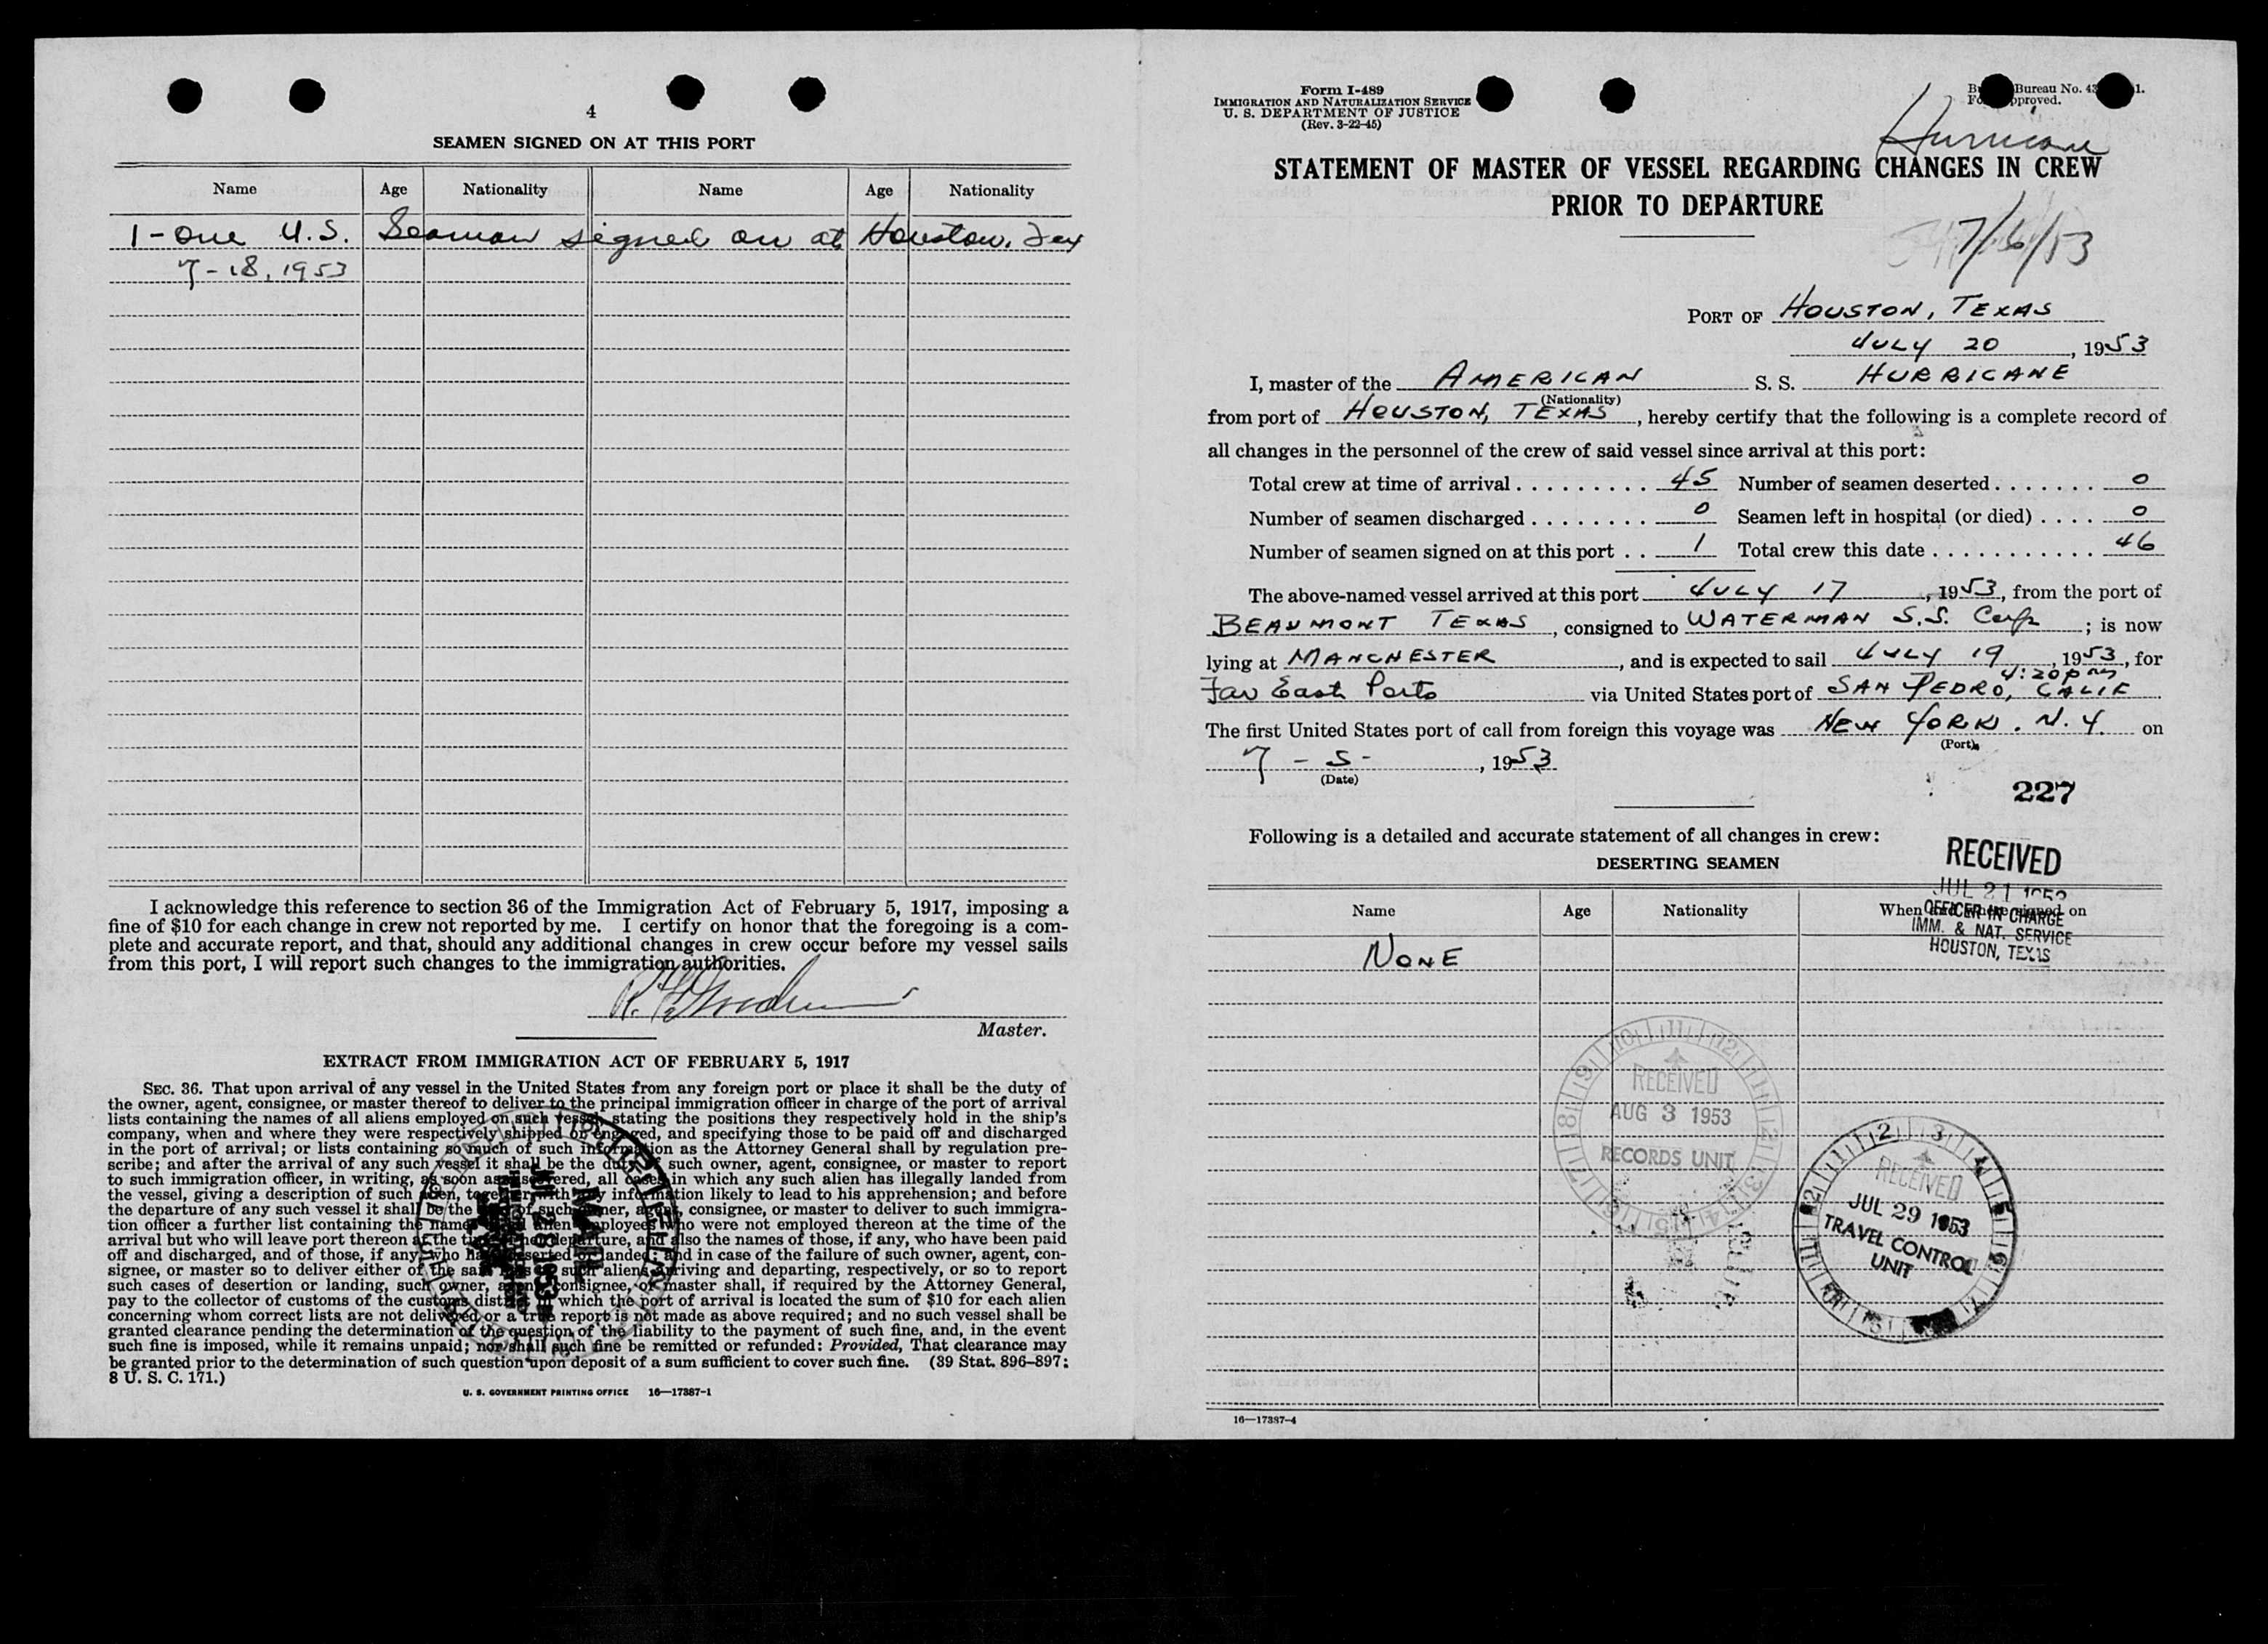 4
SEAMEN SIGNED ON AT THIS PORT
Name Age Nationality Name Age Nationality
1 - One U.S. Seaman signed on at Houston, Tex
7-18, 1953
I acknowledge this reference to section 36 of the Immigration Act of February 5, 1917, imposing a
fine of $10 for each change in crew not reported by me. I certify on honor that the foregoing is a com-
plete and accurate report, and that, should any additional changes in crew occur before my vessel sails
from this port, I will report such changes to the immigration authorities.
Master.
EXTRACT FROM IMMIGRATION ACT OF FEBRUARY 5, 1917
SEC. 36. That upon arrival of any vessel in the United States from any foreign port or place it shall be the duty of
the owner, agent, consignee, or master thereof to deliver to the principal immigration officer in charge of the port of arrival
lists containing the names of all aliens employed on such vessel, stating the positions they respectively hold in the ship's
company, when and where they were respectively shipped or engaged, and specifying those to be paid off and discharged
in the port of arrival; or lists containing so much of such information as the Attorney General shall by regulation pre-
scribe; and after the arrival of any such vessel it shall be the duty of such owner, agent, consignee, or master to report
to such immigration officer, in writing, as soon as discovered, all cases in which any such alien has illegally landed from
the vessel, giving a description of such alien, together with any information likely to lead to his apprehension; and before
the departure of any such vessel it shall be the duty of such owner, agent, consignee, or master to deliver to such immigra-
tion officer a further list containing the names of all alien employees who were not employed thereon at the time of the
arrival but who will leave port thereon at the time of her departure, and also the names of those, if any, who have been paid
off and discharged, and of those, if any, who have deserted or landed; and in case of the failure of such owner, agent, con-
signee, or master so to deliver either of the said lists of such aliens arriving and departing, respectively, or so to report
such cases of desertion or landing, such owner, agent, consignee, or master shall, if required by the Attorney General,
pay to the collector of customs of the customs district in which the port of arrival is located the sum of $10 for each alien
concerning whom correct lists are not delivered or a true report is not made as above required; and no such vessel shall be
granted clearance pending the determination of the question of the liability to the payment of such fine, and, in the event
such fine is imposed, while it remains unpaid; nor shall such fine be remitted or refunded: Provided, That clearance may
be granted prior to the determination of such question upon deposit of a sum sufficient to cover such fine. (39 Stat. 896–897;
8 U. S. C. 171.)
MAIL
JUL 28 1953
U. S. GOVERNMENT PRINTING OFFICE 16—17387-1
Form I-489
IMMIGRATION AND NATURALIZATION SERVICE
U. S. DEPARTMENT OF JUSTICE
(Rev. 3-22-45)
Bureau No. 43
pproved.
Hurricane
STATEMENT OF MASTER OF VESSEL REGARDING CHANGES IN CREW
PRIOR TO DEPARTURE
7/6/53
PORT OF HOUSTON, TEXAS
JULY 20, 1953
I, master of the AMERICAN S. S. HURRICANE
(Nationality)
from port of HOUSTON, TEXAS, hereby certify that the following is a complete record of
all changes in the personnel of the crew of said vessel since arrival at this port:
Total crew at time of arrival . . . . . . . . . 45 Number of seamen deserted . . . . . . . 0
Number of seamen discharged . . . . . . . . 0 Seamen left in hospital (or died) . . . . 0
Number of seamen signed on at this port . . 1 Total crew this date . . . . . . . . . . . 46
The above-named vessel arrived at this port JULY 17, 1953, from the port of
BEAUMONT TEXAS, consigned to WATERMAN S.S. Corp; is now
lying at MANCHESTER, and is expected to sail JULY 19, 1953, for
4:20 pm
Far East Ports via United States port of SAN PEDRO, CALIF
The first United States port of call from foreign this voyage was NEW YORK. N.Y. on
(Port)
7 - 5 -, 1953
(Date)
227
Following is a detailed and accurate statement of all changes in crew:
DESERTING SEAMEN
RECEIVED
JUL 21 1953
OFFICER IN CHARGE
IMM. & NAT. SERVICE
HOUSTON, TEXAS
Name Age Nationality When and where signed on
NONE
RECEIVED
AUG 3 1953
RECORDS UNIT
RECEIVED
JUL 29 1953
TRAVEL CONTROL
UNIT
16—17387-4